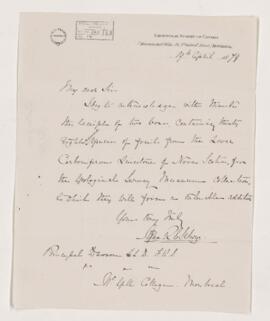 GEOLOGICAL SURVEY OF CANADA
9th April 1878
My dear Sir
I beg to acknowledge with thanks
the receipt of two boxes containing thirty
eight species of fossils from the Lower
Carboniferous Limestone of Nova Scotia, for
the Geological Survey Museum collection,
to which they will form a valuable addition
Yours very truly
Principal Dawson LL.D. F.R.S.
McGill College. Montreal